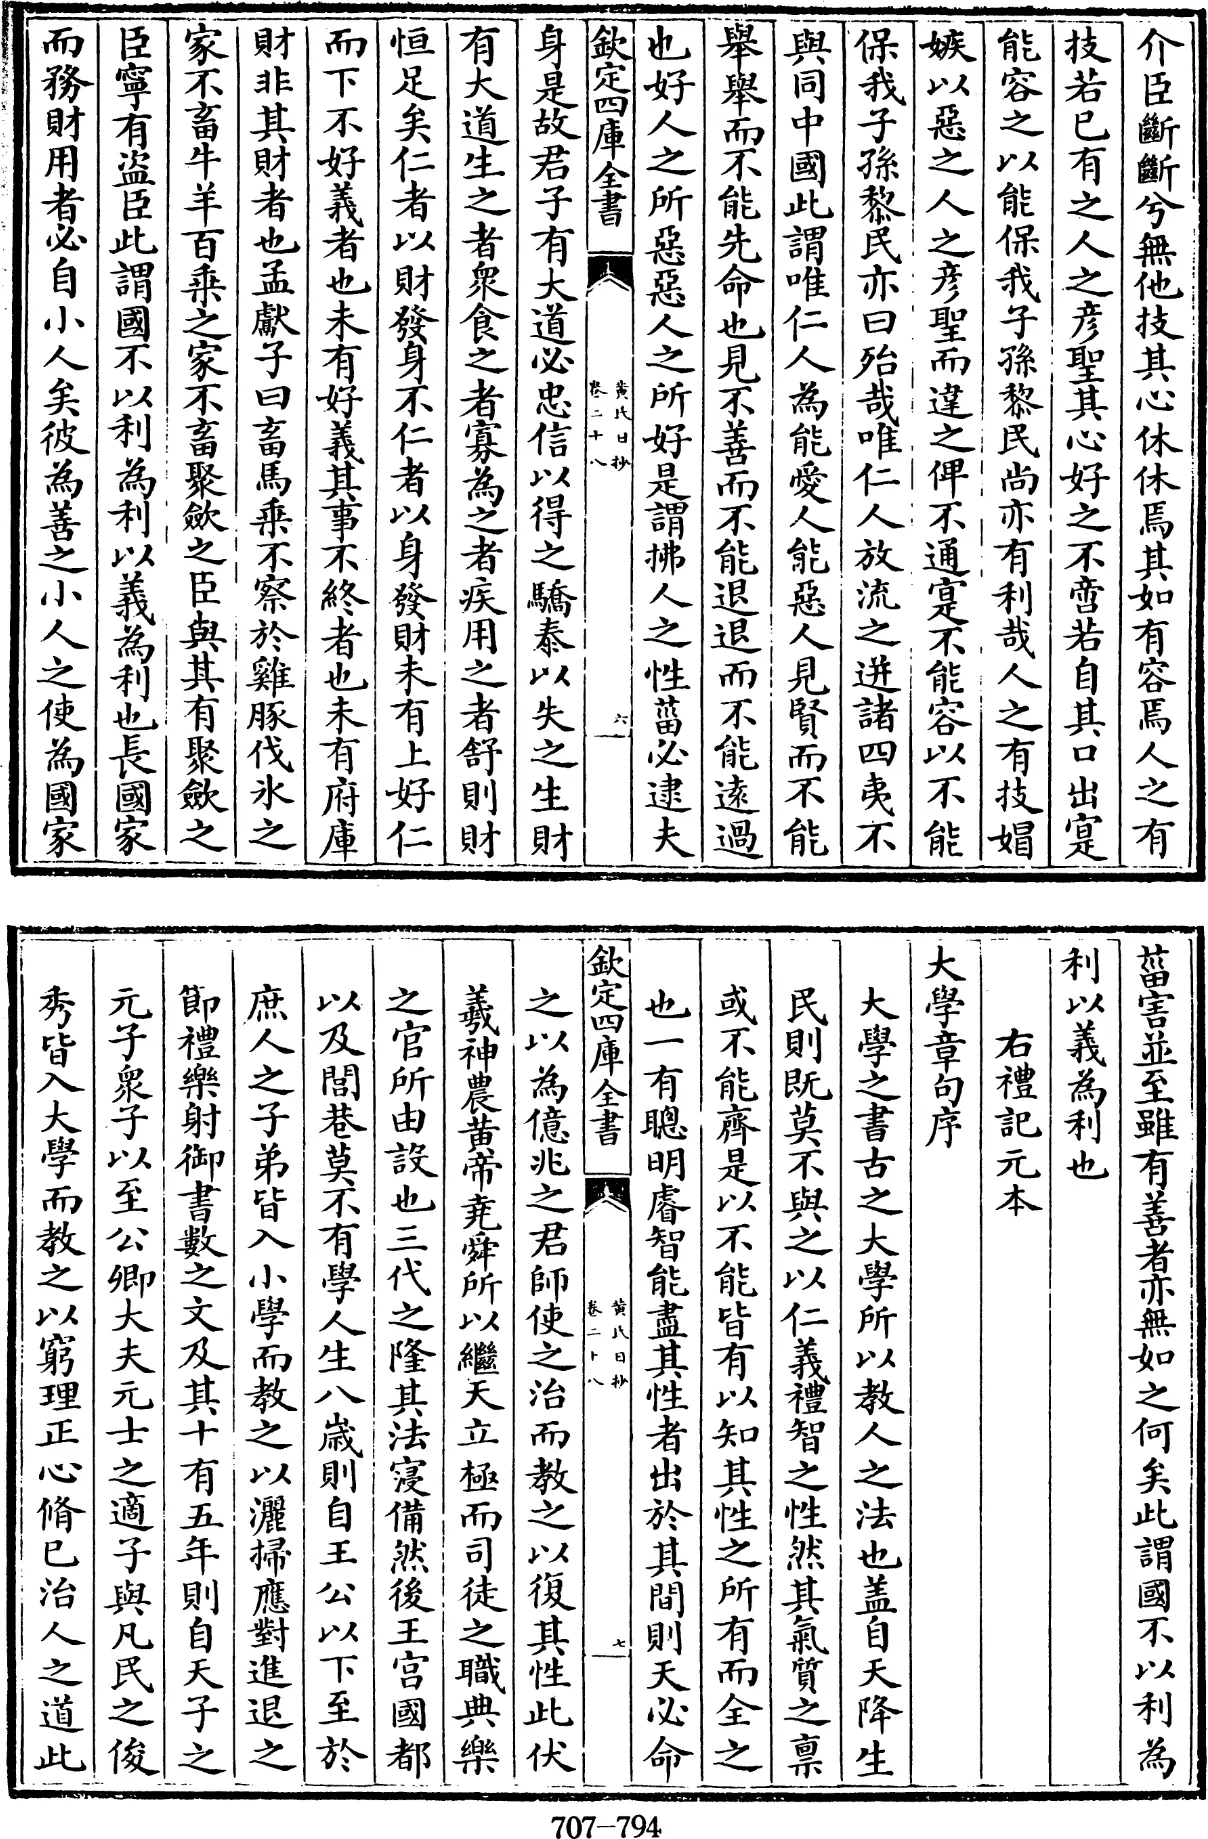 介臣斷斷兮無他技其心休休焉其如有容焉人之有
技若已有之人之彦聖其心好之不啻若自其口出寔
能容之以能保我子孫黎民尚亦有利哉人之有技媢
嫉以惡之人之彦聖而違之俾不通寔不能容以不能
保我子孫黎民亦曰殆哉唯仁人放流之迸諸四夷不
與同中國此謂唯仁人為能愛人能惡人見賢而不能
舉舉而不能先命也見不善而不能退退而不能逺過
也好人之所惡惡人之所好是謂拂人之性菑必逮夫
欽定四庫全書
黄氏日抄
卷二十八
六
身是故君子有大道必忠信以得之驕泰以失之生財
有大道生之者衆食之者寡為之者疾用之者舒則財
恒足矣仁者以財發身不仁者以身發財未有上好仁
而下不好義者也未有好義其事不終者也未有府庫
財非其財者也孟獻子曰畜馬乗不察於雞豚伐氷之
家不畜牛羊百乗之家不畜聚歛之臣與其有聚歛之
臣寧有盗臣此謂國不以利為利以義為利也長國家
而務財用者必自小人矣彼為善之小人之使為國家
菑害並至雖有善者亦無如之何矣此謂國不以利為
利以義為利也
右禮記元本
大學章句序
大學之書古之大學所以教人之法也盖自天降生
民則既莫不與之以仁義禮智之性然其氣質之禀
或不能齊是以不能皆有以知其性之所有而全之
也一有聰明睿智能盡其性者出於其間則天必命
欽定四庫全書
黄氏日抄
卷二十八
七
之以為億兆之君師使之治而教之以復其性此伏
羲神農黄帝堯舜所以繼天立極而司徒之職典樂
之官所由設也三代之隆其法寖備然後王宫國都
以及閭巷莫不有學人生八歲則自王公以下至於
庶人之子弟皆入小學而教之以灑掃應對進退之
節禮樂射御書數之文及其十有五年則自天子之
元子衆子以至公卿大夫元士之適子與凡民之俊
秀皆入大學而教之以窮理正心脩已治人之道此
707-794